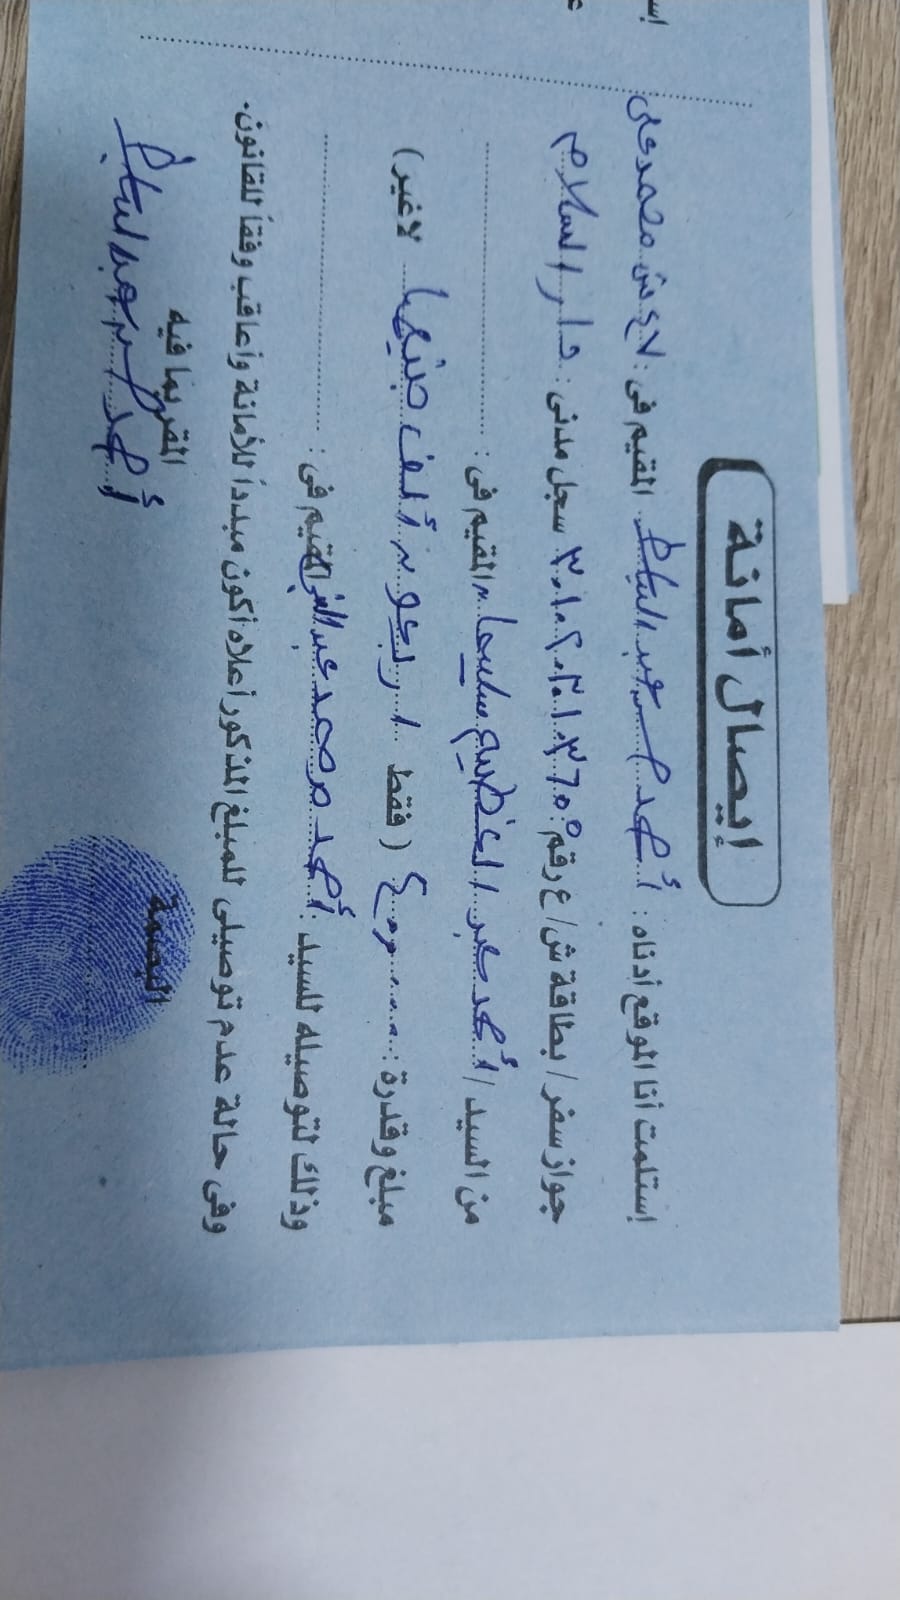 إيصال أمانة
إستلمت أنا الموقع أدناه : أحمد عبد الستار المقيم فى : ٤٧ ش محمد على
جواز سفر / بطاقة ش / ع رقم : سجل مدنى : دار السلام
من السيد / أحمد عبد العظيم سليمان المقيم فى :
مبلغ وقدرة : ٤٠٠٠٠ ( فقط اربعون ألف جنيها لا غير )
وذلك لتوصيله للسيد : أحمد محمد عبد الغنى المقيم فى :
وفى حالة عدم توصيلى للمبلغ المذكور أعلاه أكون مبدداً للأمانة وأعاقب وفقاً للقانون.
البصمة المقر بما فيه
أحمد عبد الستار